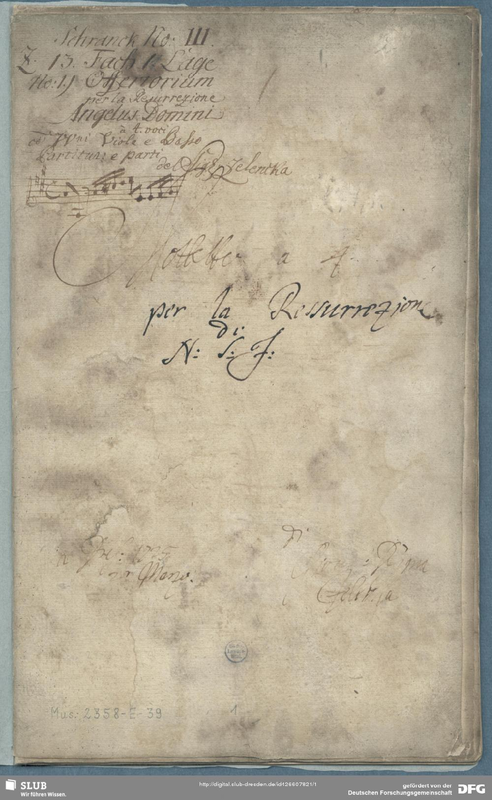 Schranck No: III.
Z 13. Fach 1. Lage
No: 1.) Offertorium
per la Resurrezione
Angelus Domini
à 4. voci
co VVni Viole e Basso
Partitura e parti
del Sig: Zelenka
Mottetto a 4
per la Ressurrezjone
di
N: S: J:
Marzo.
Mus. 2358-E-39
1
SLUB
Wir führen Wissen.
http://digital.slub-dresden.de/id126607821/1
gefördert von der
Deutschen Forschungsgemeinschaft DFG